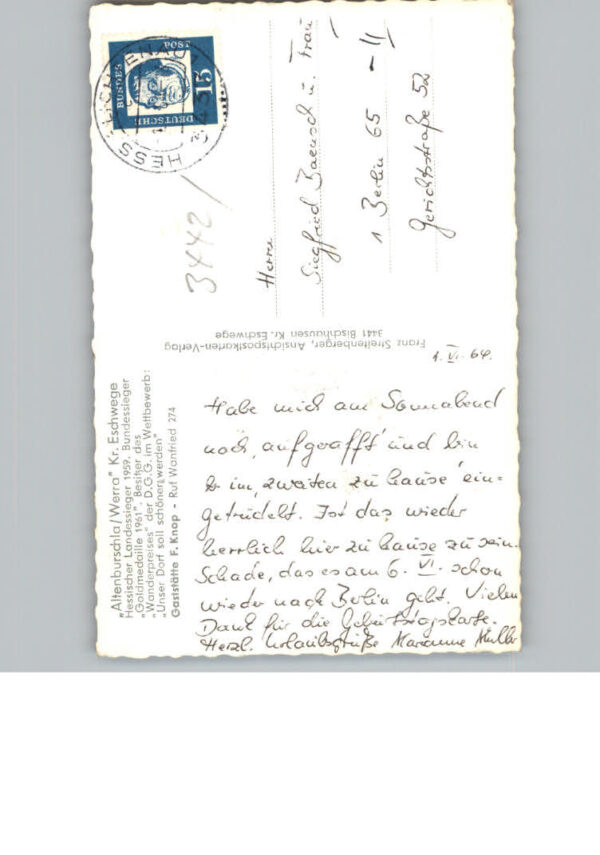 15
DEUTSCHE
BUNDES
POST
HESS. LICHTENAU
3442/
Herrn
Siegfried Baensch u. Frau
1 Berlin 65 - II
Gerichtstraße 52
Franz Streitenberger, Ansichtspostkarten-Verlag
3441 Bischhausen Kr. Eschwege
„Altenburschla/Werra" Kr. Eschwege
Hessischer Landessieger 1959. Bundessieger
„Goldmedaille 1961". Besitzer des
„Wanderpreises" der D.G.G. im Wettbewerb:
„Unser Dorf soll schöner werden"
Gaststätte F. Knop - Ruf Wanfried 274
1. VI. 64.
Habe mich am Sonnabend
noch ‚aufgerafft' und bin
im ‚zweiten zu hause' ein-
getrudelt. Ist das wieder
herrlich hier zu hause zu sein.
Schade, das es am 6. VI. schon
wieder nach Berlin geht. Vielen
Dank für die Geburtstagskarte.
Herzl. Urlaubsgrüße Marianne